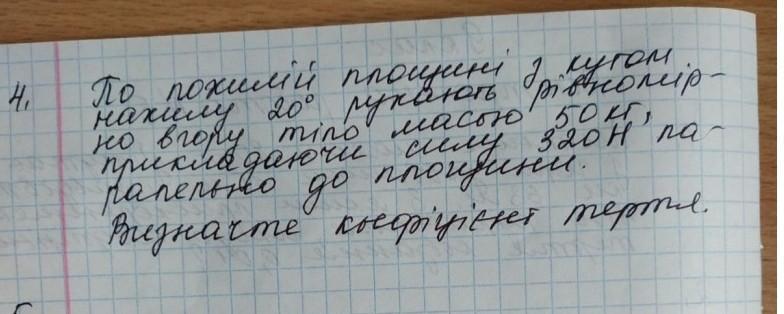 4. По похилій площині з кутом
нахилу 20° рухають рівномір-
но вгору тіло масою 50 кг,
прикладаючи силу 320 Н па-
ралельно до площини.
Визначте коефіцієнт тертя.